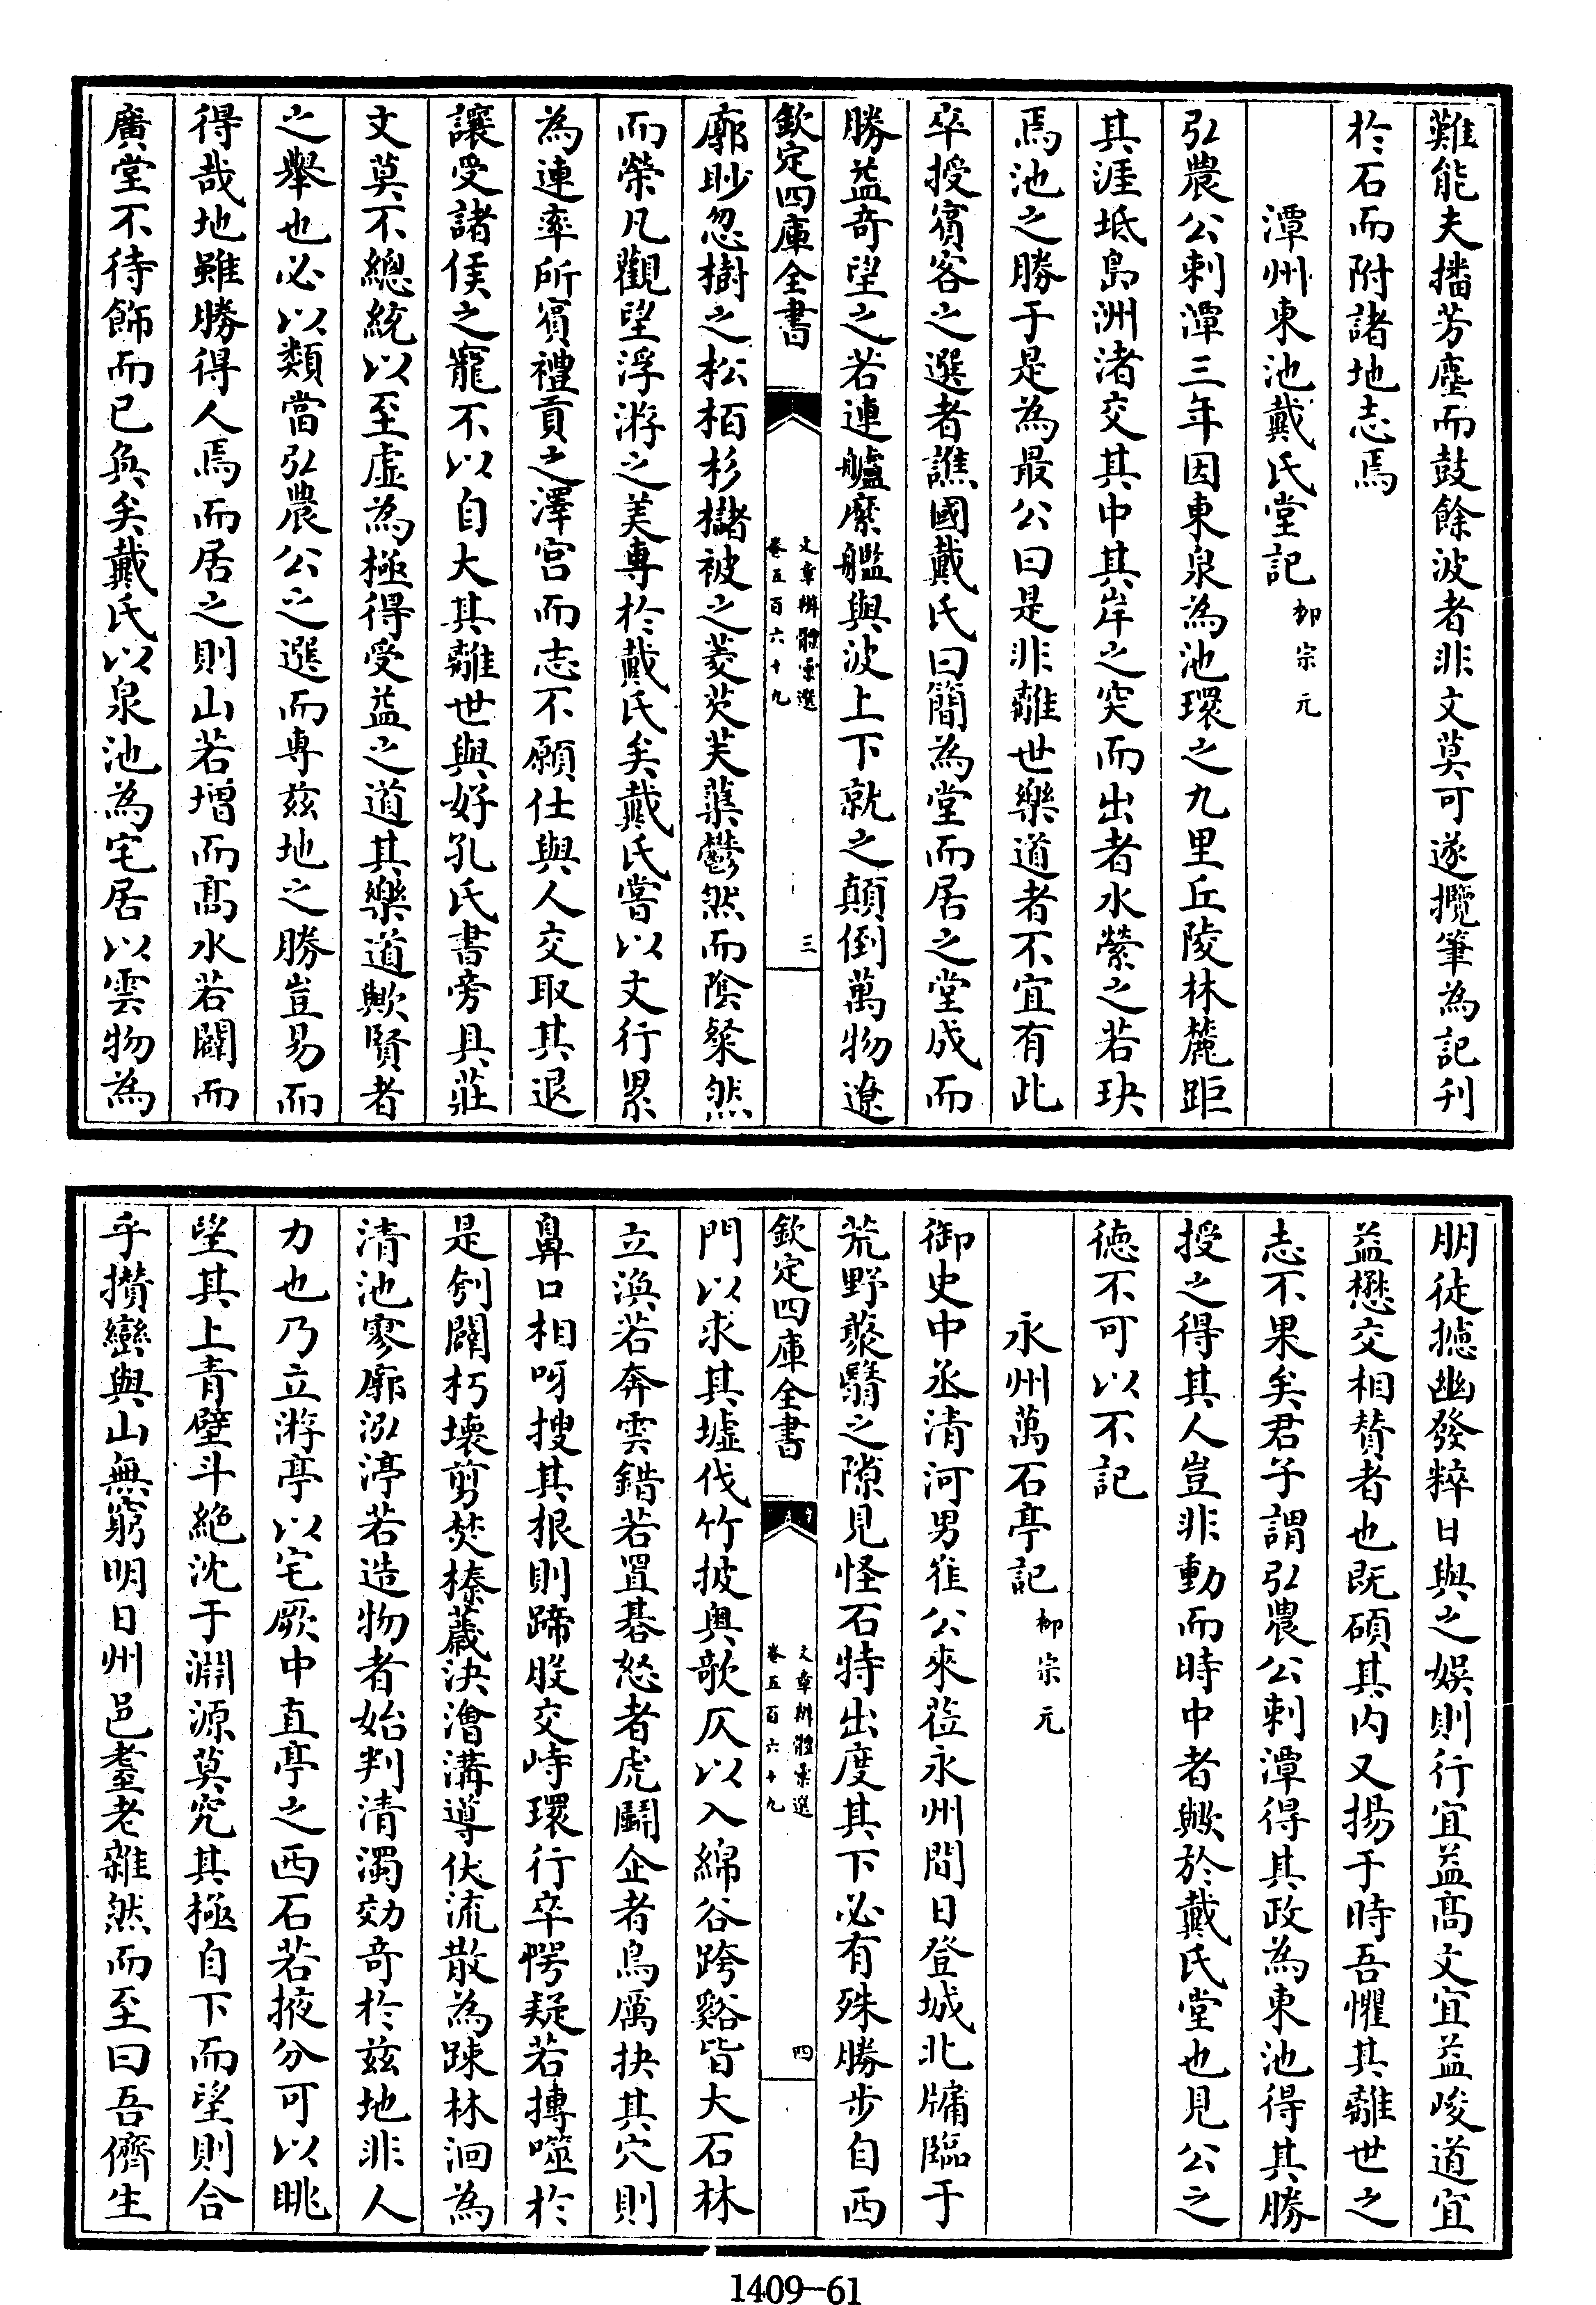 難能夫播芳塵而鼓餘波者非文莫可遂攬筆為記刋
於石而附諸地志焉
潭州東池戴氏堂記 柳宗元
弘農公刺潭三年因東泉為池環之九里丘陵林麓距
其涯坻島洲渚交其中其岸之突而出者水縈之若玦
焉池之勝于是為最公曰是非離世樂道者不宜有此
卒授賓客之選者譙國戴氏曰簡為堂而居之堂成而
勝益奇望之若連艫縻艦與波上下就之顛倒萬物遼
欽定四庫全書
文章辨體彙選
卷五百六十九
三
廓眇忽樹之松栢杉櫧被之菱芡芙蕖鬱然而陰粲然
而榮凡觀望浮游之美専於戴氏矣戴氏嘗以文行累
為連率所賓禮貢之澤宫而志不願仕與人交取其退
讓受諸侯之寵不以自大其離世與好孔氏書旁具莊
文莫不總統以至虚為極得受益之道其樂道歟賢者
之舉也必以類當弘農公之選而専兹地之勝豈易而
得哉地雖勝得人焉而居之則山若增而髙水若闢而
廣堂不待飾而已奐矣戴氏以泉池為宅居以雲物為
朋徒攄幽發粹日與之娛則行宜益髙文宜益峻道宜
益懋交相賛者也既碩其内又揚于時吾懼其離世之
志不果矣君子謂弘農公刺潭得其政為東池得其勝
授之得其人豈非動而時中者歟於戴氏堂也見公之
徳不可以不記
永州萬石亭記 柳宗元
御史中丞清河男崔公來莅永州間日登城北墉臨于
荒野藂翳之隙見怪石特出度其下必有殊勝步自西
欽定四庫全書
文章辨體彙選
卷五百六十九
四
門以求其墟伐竹披奥欹仄以入綿谷跨谿皆大石林
立渙若奔雲錯若置碁怒者虎鬭企者鳥厲抉其穴則
鼻口相呀搜其根則蹄股交峙環行卒愕疑若搏噬於
是刳闢朽壤剪焚榛薉決澮溝導伏流散為踈林洄為
清池寥廓泓渟若造物者始判清濁効竒於兹地非人
力也乃立游亭以宅厥中直亭之西石若掖分可以眺
望其上青壁斗絶沈于淵源莫究其極自下而望則合
乎攅巒與山無窮明日州邑耋老雜然而至曰吾儕生
1409-61